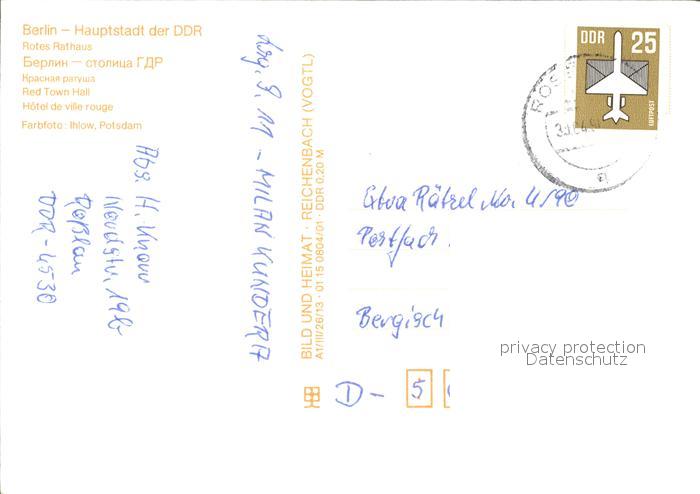 Berlin – Hauptstadt der DDR
Rotes Rathaus
Берлин — столица ГДР
Красная ратуша
Red Town Hall
Hôtel de ville rouge
Farbfoto: Ihlow, Potsdam
Abs. H.
Roßlau
DDR - 4530
- MILAN KUNDERA
BILD UND HEIMAT · REICHENBACH (VOGTL)
A1/III/26/13 · 01 15 0804/01 · DDR 0,20 M
DDR 25
LUFTPOST
Extra Rätsel No. 4/90
Postfach
Bergisch
D - 5
privacy protection
Datenschutz